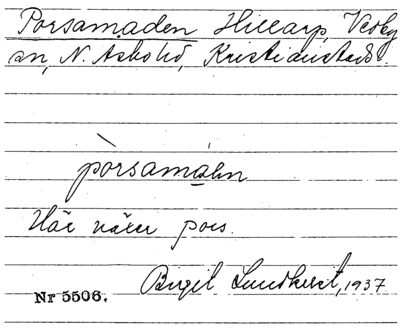 Porsamaden Hillarp, Verby
sn, N. Åsbo hd, Kristianstads.
pòrsamáen
Här växer pors.
Birgit Lundkvist, 1937
Nr 5506.